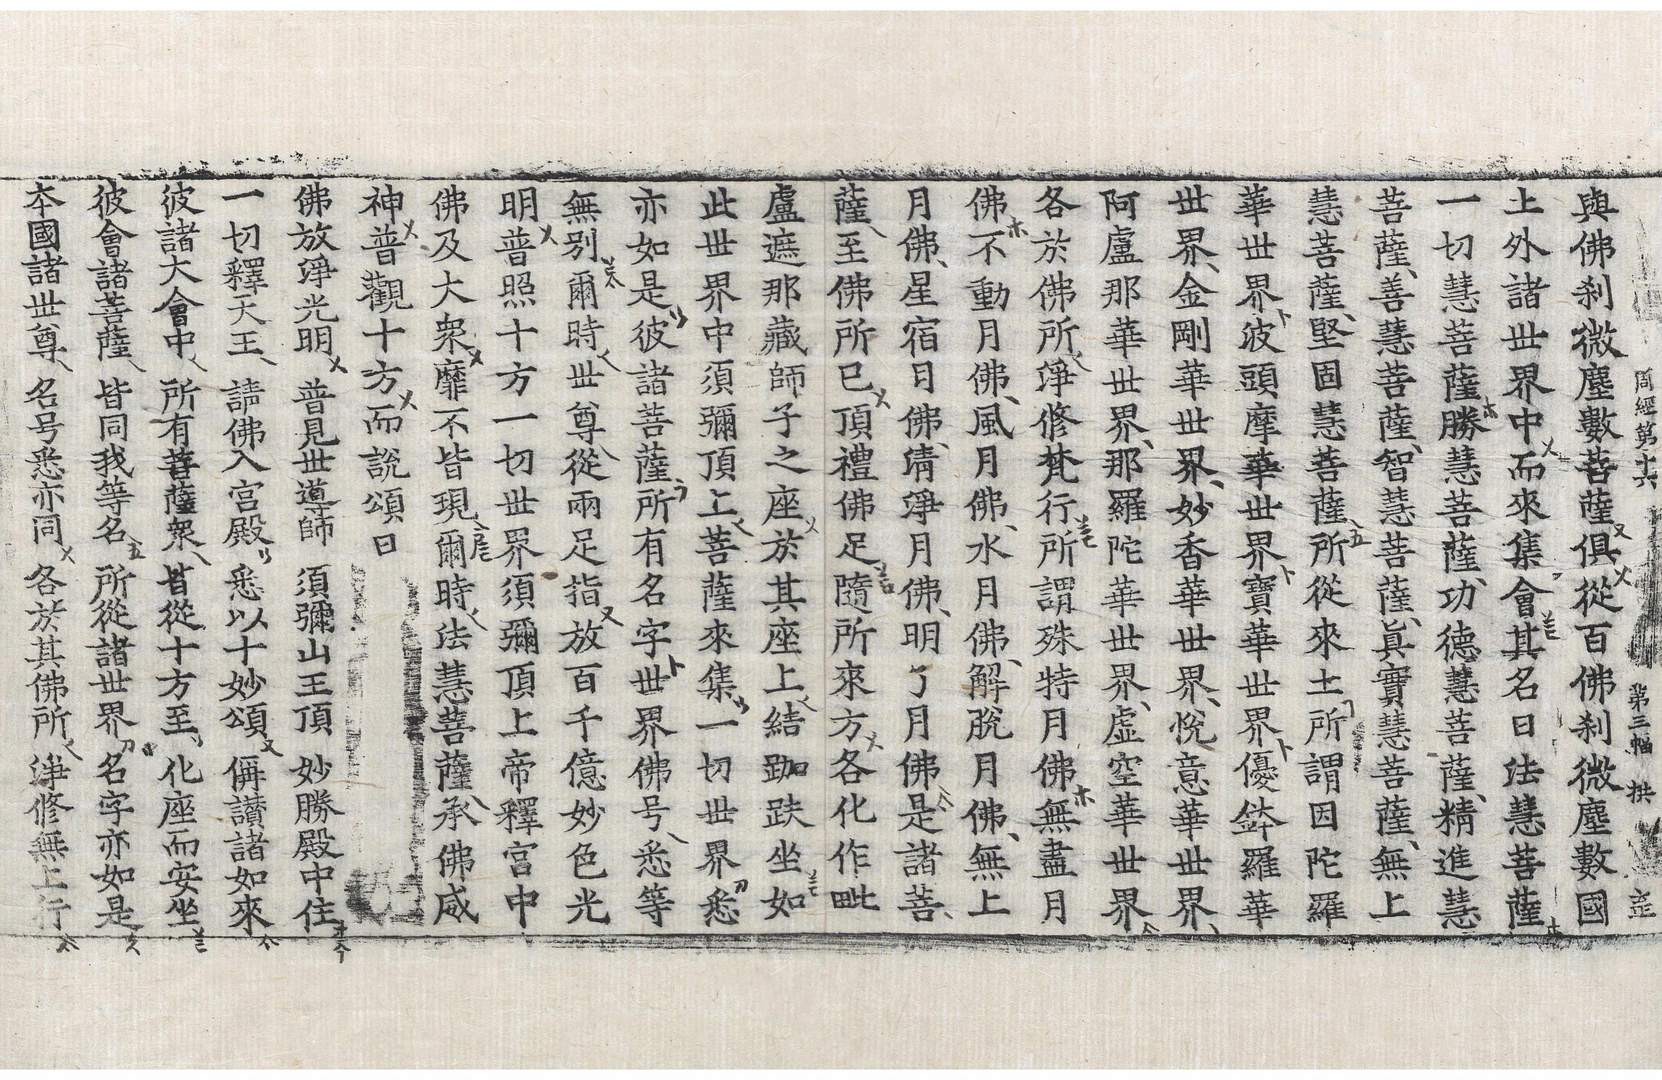 周經第十六 第三幅 拱
與佛刹微塵數菩薩俱從百佛刹微塵數國
上外諸世界中而來集會其名曰法慧菩薩
一切慧菩薩、勝慧菩薩、功德慧菩薩、精進慧
菩薩、善慧菩薩、智慧菩薩、眞實慧菩薩、無上
慧菩薩、堅固慧菩薩、所從來土所謂因陀羅
華世界波頭摩華世界寶華世界優鉢羅華
世界、金剛華世界、妙香華世界、悅意華世界、
阿盧那華世界、那羅陀華世界、虛空華世界
各於佛所淨修梵行所謂殊特月佛無盡月
佛不動月佛、風月佛、水月佛、解脫月佛、無上
月佛、星宿月佛、淸淨月佛、明了月佛是諸菩
薩至佛所已頂禮佛足隨所來方各化作毗
盧遮那藏師子之座於其座上結跏趺坐如
此世界中須彌頂上菩薩來集一切世界悉
亦如是彼諸菩薩所有名字世界佛号悉等
無別爾時世尊從兩足指放百千億妙色光
明普照十方一切世界須彌頂上帝釋宮中
佛及大衆靡不皆現爾時法慧菩薩承佛威
神普觀十方而說頌曰
佛放淨光明 普見世導師 須彌山王頂 妙勝殿中住
一切釋天王 請佛入宮殿 悉以十妙頌 稱讃諸如來
彼諸大會中 所有菩薩衆 皆從十方至 化座而安坐
彼會諸菩薩 皆同我等名 所從諸世界 名字亦如是
本國諸世尊 名号悉亦同 各於其佛所 淨修無上行